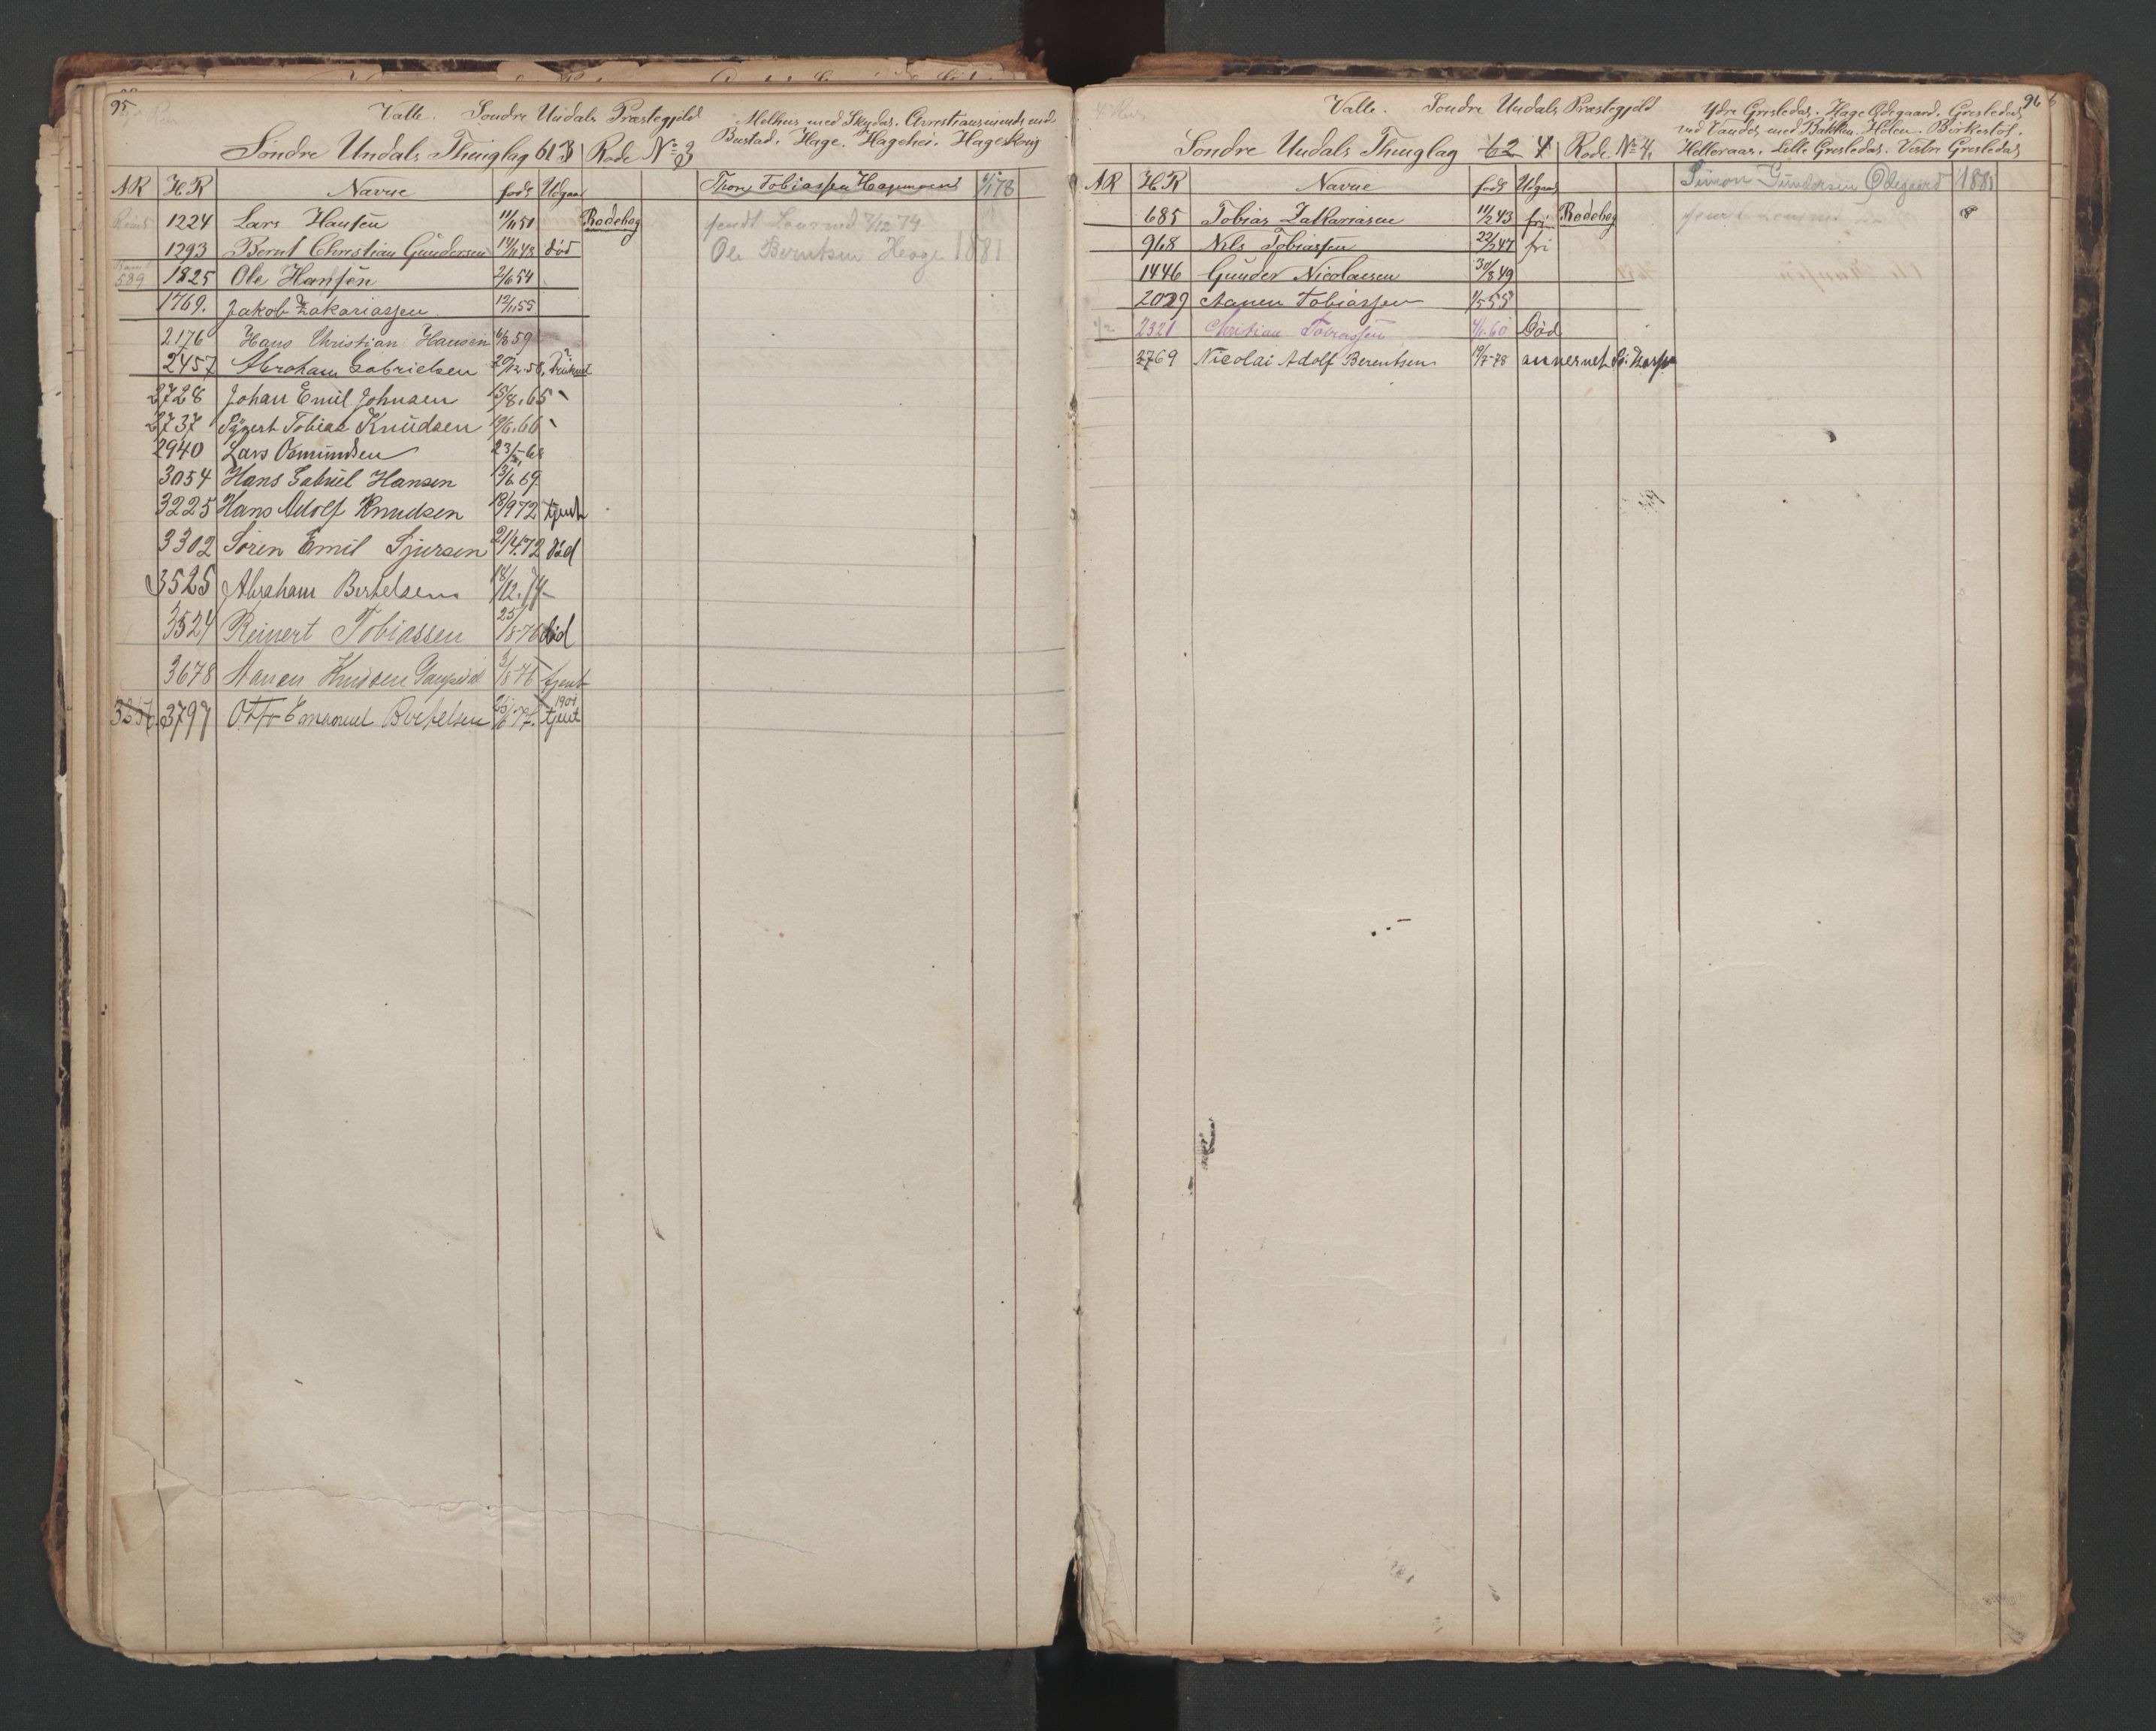 95
Valle. Söndre Undals Præstegjeld
Melhus med Skydas. Christiansminde med
Bustad. Hage. Hagehei. Hageskrug
Söndre Undals Thinglag 613 Rode No 3
AR HR Navne födt Udgaar
Thore Tobiassen Hagemoen 1/1 78
1224 Lars Hansen 11/11 51 Rodebog
sendt Lensmd 7/12 74
1293 Bernt Christian Gundersen 14/11 48 död
Ole Berntsen Hage 1881
589 1825 Ole Hansen 2/6 54
1769. Jakob Zakariassen 12/11 55
2176 Hans Christian Hansen 6/8 59
2457 Abraham Gabrielsen 20/12.58, Druknet
2728 Johan Emil Johnsen 13/8.65 -
2737 Sigvert Tobias Knudsen 19/6.66 -
2940 Lars Osmundsen 23/5-68
3054 Hans Gabriel Hansen 13/6 69
3225 Hans Adolf Knudsen 18/9 72 tjent
3302 Sören Emil Sjursen 21/4.72 Död
3525 Abraham Bertelsen 14/12.74-
3524 Reinert Tobiassen 25/8-76 död
3678 Aanen Knudsen 3/8-76 tjent
3797 Otto Emanuel Bertelsen 25/6 77. 1904 tjent
96
Valle. Söndre Undals Præstegjeld
Ydre Gresledas. Hage Ödegaard. Gresledas
ved Vandet med Bakken. Holen. Birkestöl.
Helleraas. Lille Gresledas. Vestre Gresledas
Söndre Undals Thinglag 62 4 Rode No 4.
AR HR Navne födt Udgaar
Simon Gundersen Ödegaard 1881
685 Tobias Zakariasen 11/2 43 fri Rodebog
968 Nils Tobiassen 22/2 47 fri
1446 Gunder Nicolaisen 30/8 49
2029 Aanen Tobiassen 1/5 55
2321 Christian Tobiassen 4/1-60 Död
3769 Nicolai Adolf Berentsen 19/7-78